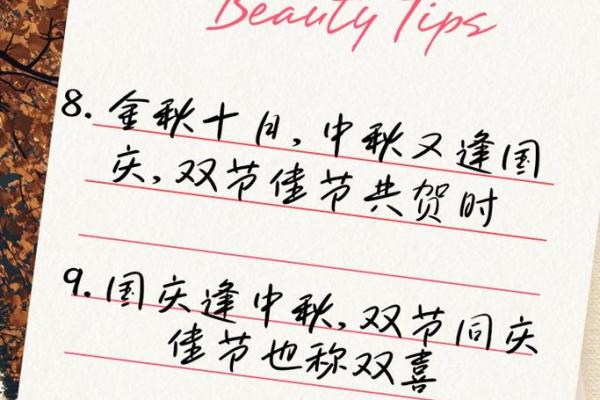 Beauty Tips
8. 金秋十月，中秋又逢国
庆，双节佳节共贺时
9. 国庆逢中秋，双节同庆
佳节也称双喜